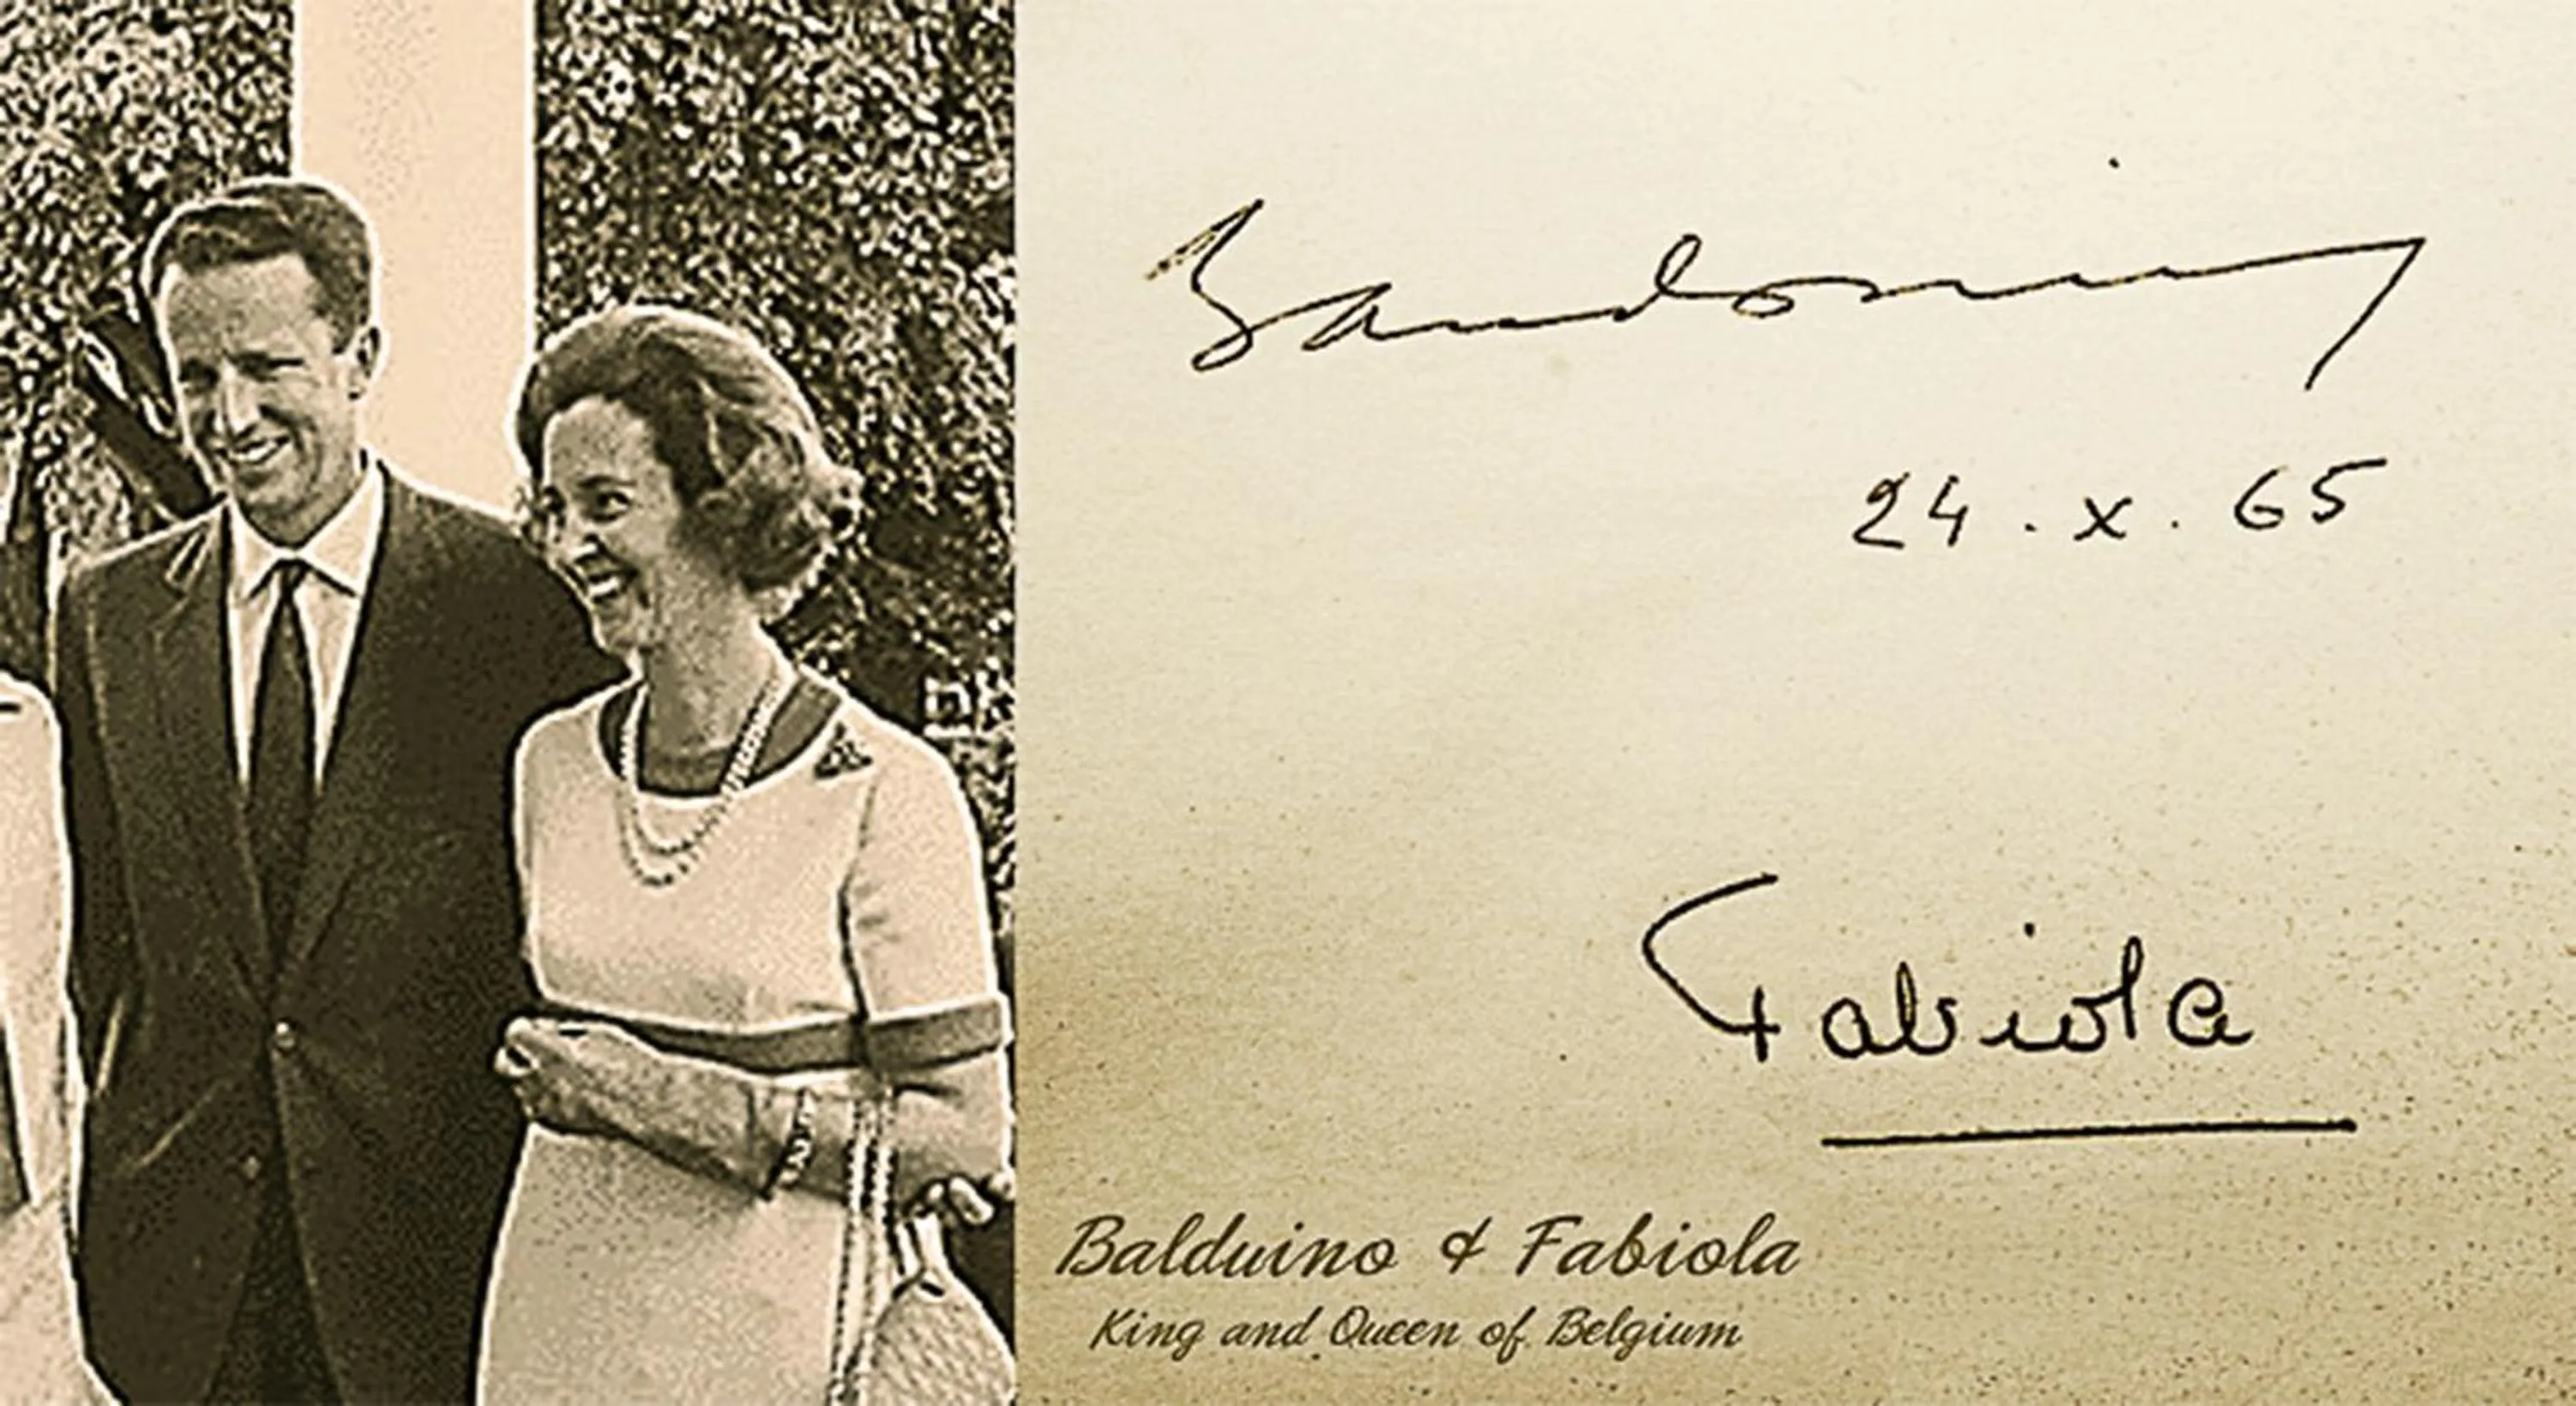 Baudouin
24 . X . 65
Fabiola
Balduino & Fabiola
King and Queen of Belgium